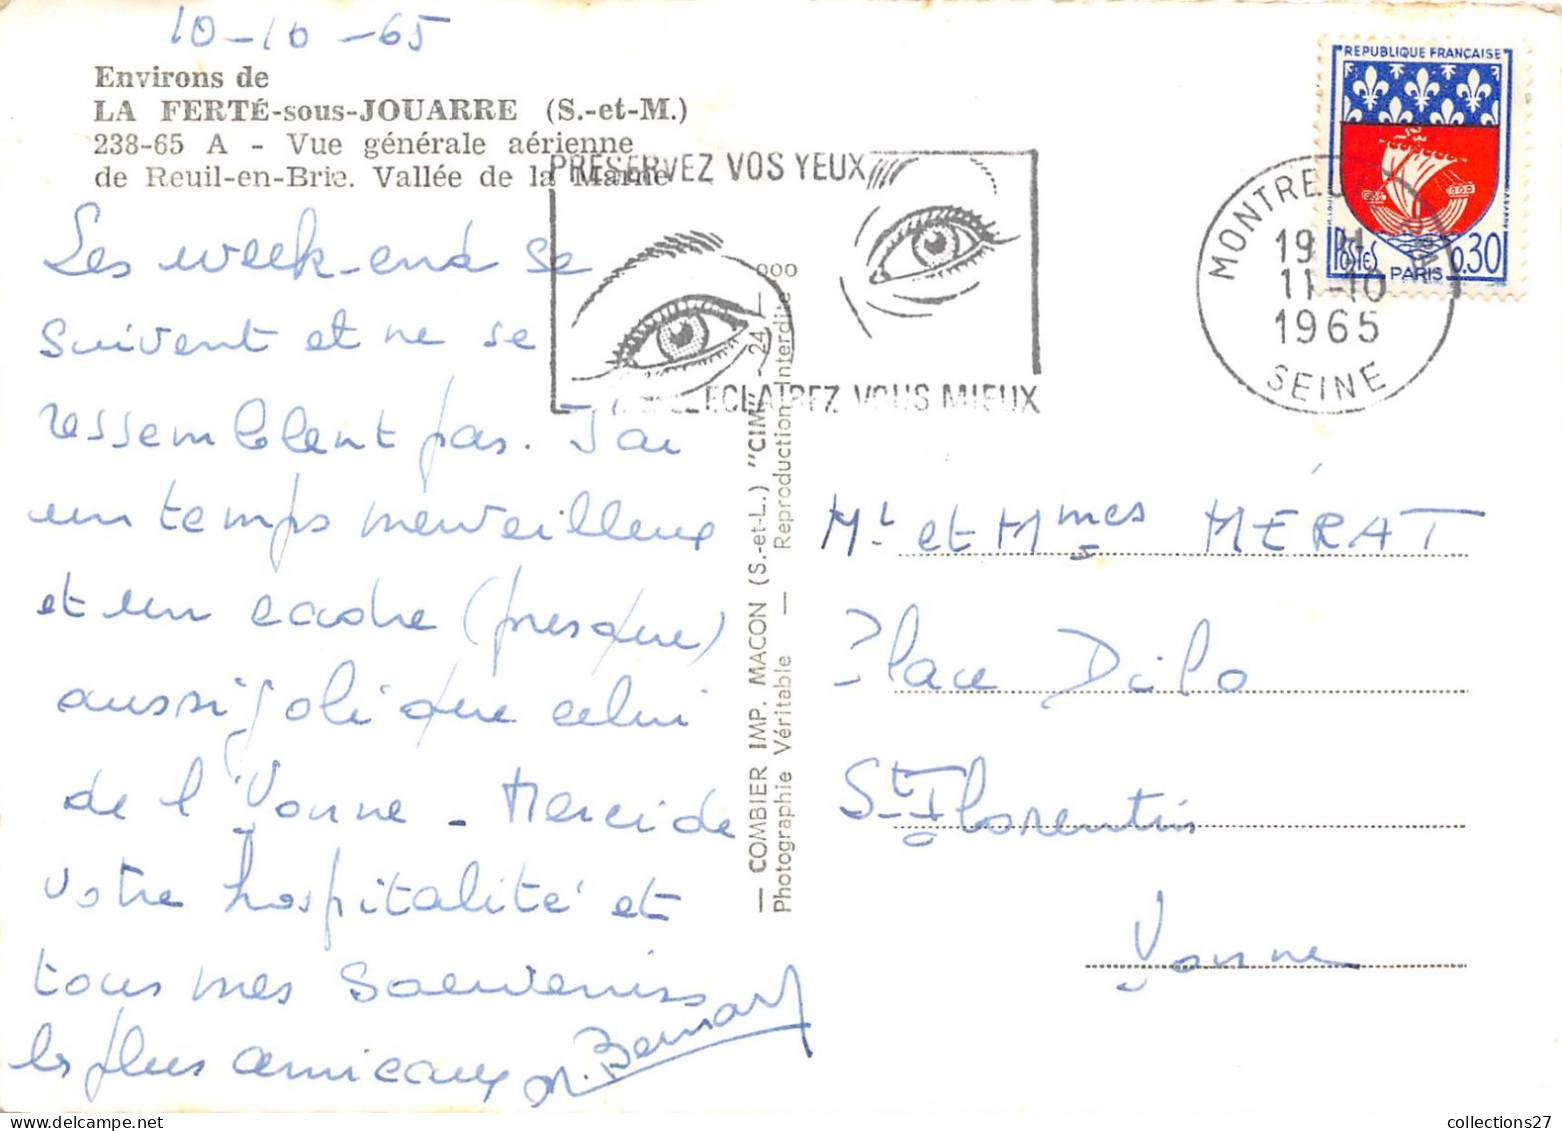 10-10-65
Environs de
LA FERTÉ-sous-JOUARRE (S.-et-M.)
238-65 A - Vue générale aérienne
de Reuil-en-Brie. Vallée de la Marne
Les week-end se
suivent et ne se
ressemblent pas. J'ai
un temps merveilleux
et un cadre (presque)
aussi joli que celui
de l'Yonne - Merci de
votre hospitalité et
tous mes souvenirs
les plus amicaux
Bernard
PRESERVEZ VOS YEUX
ECLAIREZ VOUS MIEUX
— COMBIER IMP. MACON (S.-et-L.) "CIM" - 24 —
Photographie Véritable — Reproduction Interdite 000
REPUBLIQUE FRANÇAISE
POSTES
0.30
PARIS
MONTREUIL
19 H
11-10
1965
SEINE
Mr et Mmes MÉRAT
Place Dilo
St Florentin
Yonne
collections27